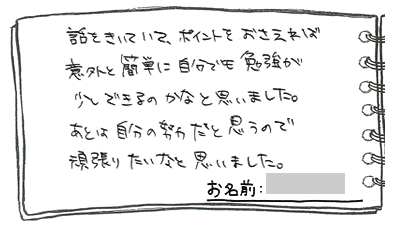 話をきいていて、ポイントをおさえれば
意外と簡単に自分でも勉強が
少しできるのかなと思いました。
あとは自分の努力だと思うので
頑張りたいなと思いました。
お名前: